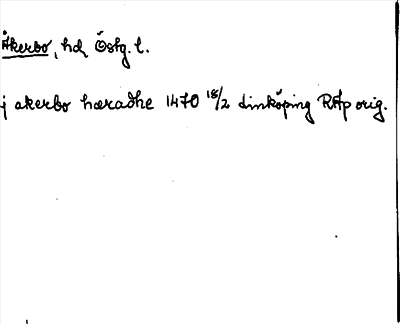 Åkerbo, hd, Östg. l.
j akerbo hæradhe 1470 18/2 Linköping RAp orig.